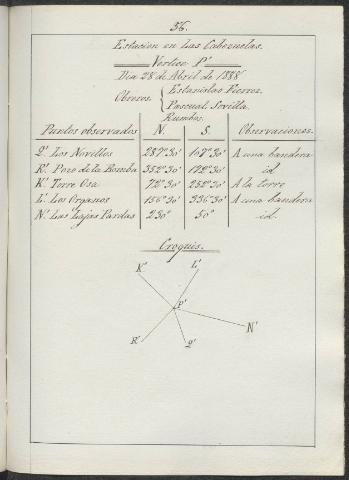 56.
Estacion en Las Cabezuelas.
Vértice P'
Dia 28 de Abril de 1888
Obreros. { Estanislao Fierrez.
Pascual Sevilla.
Rumbos.
Puntos observados N. S. Observaciones.
Q'. Los Novillos 287° 30' 107° 30' A una bandera
R'. Pozo de la Bomba 352° 30' 172° 30' id
K'. Torre Osa 72° 30' 252° 30' A la torre
L'. Los Organos 156° 30' 336° 30' A una bandera
N'. Las Lajas Pardas 230° 50° id.
Croquis.
K' L'
P'
N'
R' Q'